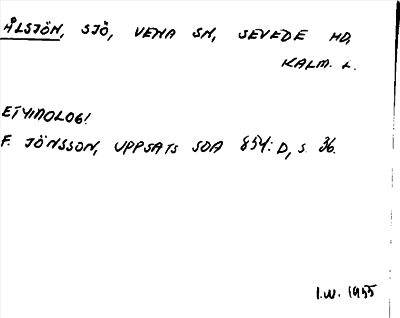 ÅLSJÖN, SJÖ, VENA SN, SEVEDE HD,
KALM. L.
ETYMOLOGI
F. JÖNSSON, UPPSATS SOA 854: D, S. 36.
I.W. 1955